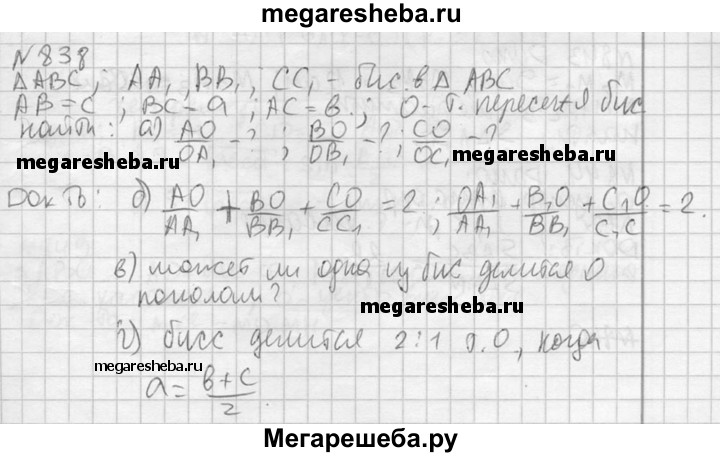 megaresheba.ru
№838
△ABC; AA₁; BB₁; CC₁ - бис. в △ ABC
AB=c; BC=a; AC=в; O-т. пересеч-я бис
найти: а) AO/OA₁ - ?; BO/OB₁ - ?; CO/OC₁ - ?
megaresheba.ru
megaresheba.ru
Док-ть: б) AO/AA₁ + BO/BB₁ + CO/CC₁ = 2; OA₁/AA₁ + B₁O/BB₁ + C₁O/C₁C = 2.
в) может ли одна из бис делится O
пополам?
megaresheba.ru
г) бисс делится 2:1 т.O, когда
megaresheba.ru
a = в+c/2.
Мегарешеба.ру